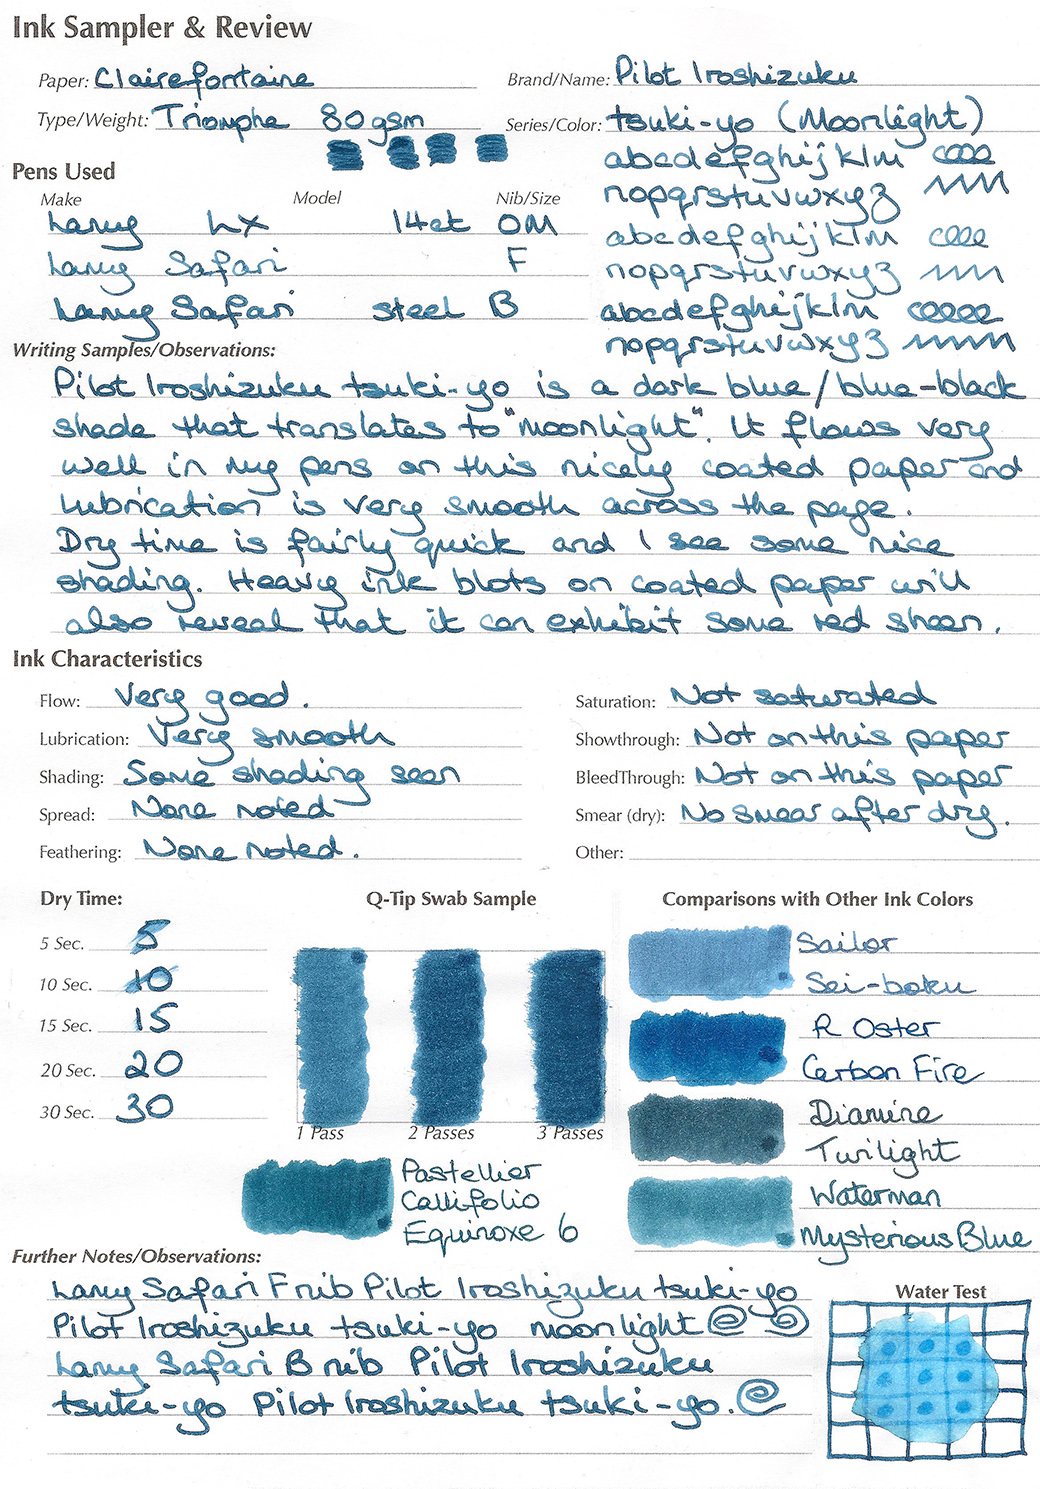 Ink Sampler & Review
Paper: Clairefontaine
Brand/Name: Pilot Iroshizuku
Type/Weight: Triomphe 80gsm
Series/Color: tsuki-yo (Moonlight)
abcdefghijklm
nopqrstuvwxyz
abcdefghijklm
nopqrstuvwxyz
abcdefghijklm
nopqrstuvwxyz
Pens Used
Make Model Nib/Size
Lamy Lx 14ct OM
Lamy Safari F
Lamy Safari steel B
Writing Samples/Observations:
Pilot Iroshizuku tsuki-yo is a dark blue/blue-black
shade that translates to "moonlight". It flows very
well in my pens on this nicely coated paper and
lubrication is very smooth across the page.
Dry time is fairly quick and I see some nice
shading. Heavy ink blots on coated paper will
also reveal that it can exhibit some red sheen.
Ink Characteristics
Flow: Very good.
Saturation: Not saturated
Lubrication: Very smooth
Showthrough: Not on this paper
Shading: Some shading seen
BleedThrough: Not on this paper
Spread: None noted
Smear (dry): No smear after dry.
Feathering: None noted.
Other:
Dry Time:
5 Sec. 5
10 Sec. 10
15 Sec. 15
20 Sec. 20
30 Sec. 30
Q-Tip Swab Sample
1 Pass 2 Passes 3 Passes
Pastellier
Callifolio
Equinoxe 6
Comparisons with Other Ink Colors
Sailor
Sei-boku
R Oster
Carbon Fire
Diamine
Twilight
Waterman
Mysterious Blue
Further Notes/Observations:
Lamy Safari F nib Pilot Iroshizuku tsuki-yo
Pilot Iroshizuku tsuki-yo moonlight
Lamy Safari B nib Pilot Iroshizuku
tsuki-yo Pilot Iroshizuku tsuki-yo.
Water Test